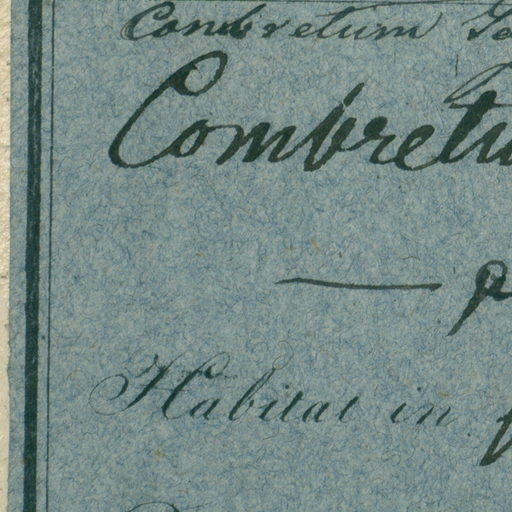 Combretum
Combretu
—
Habitat in